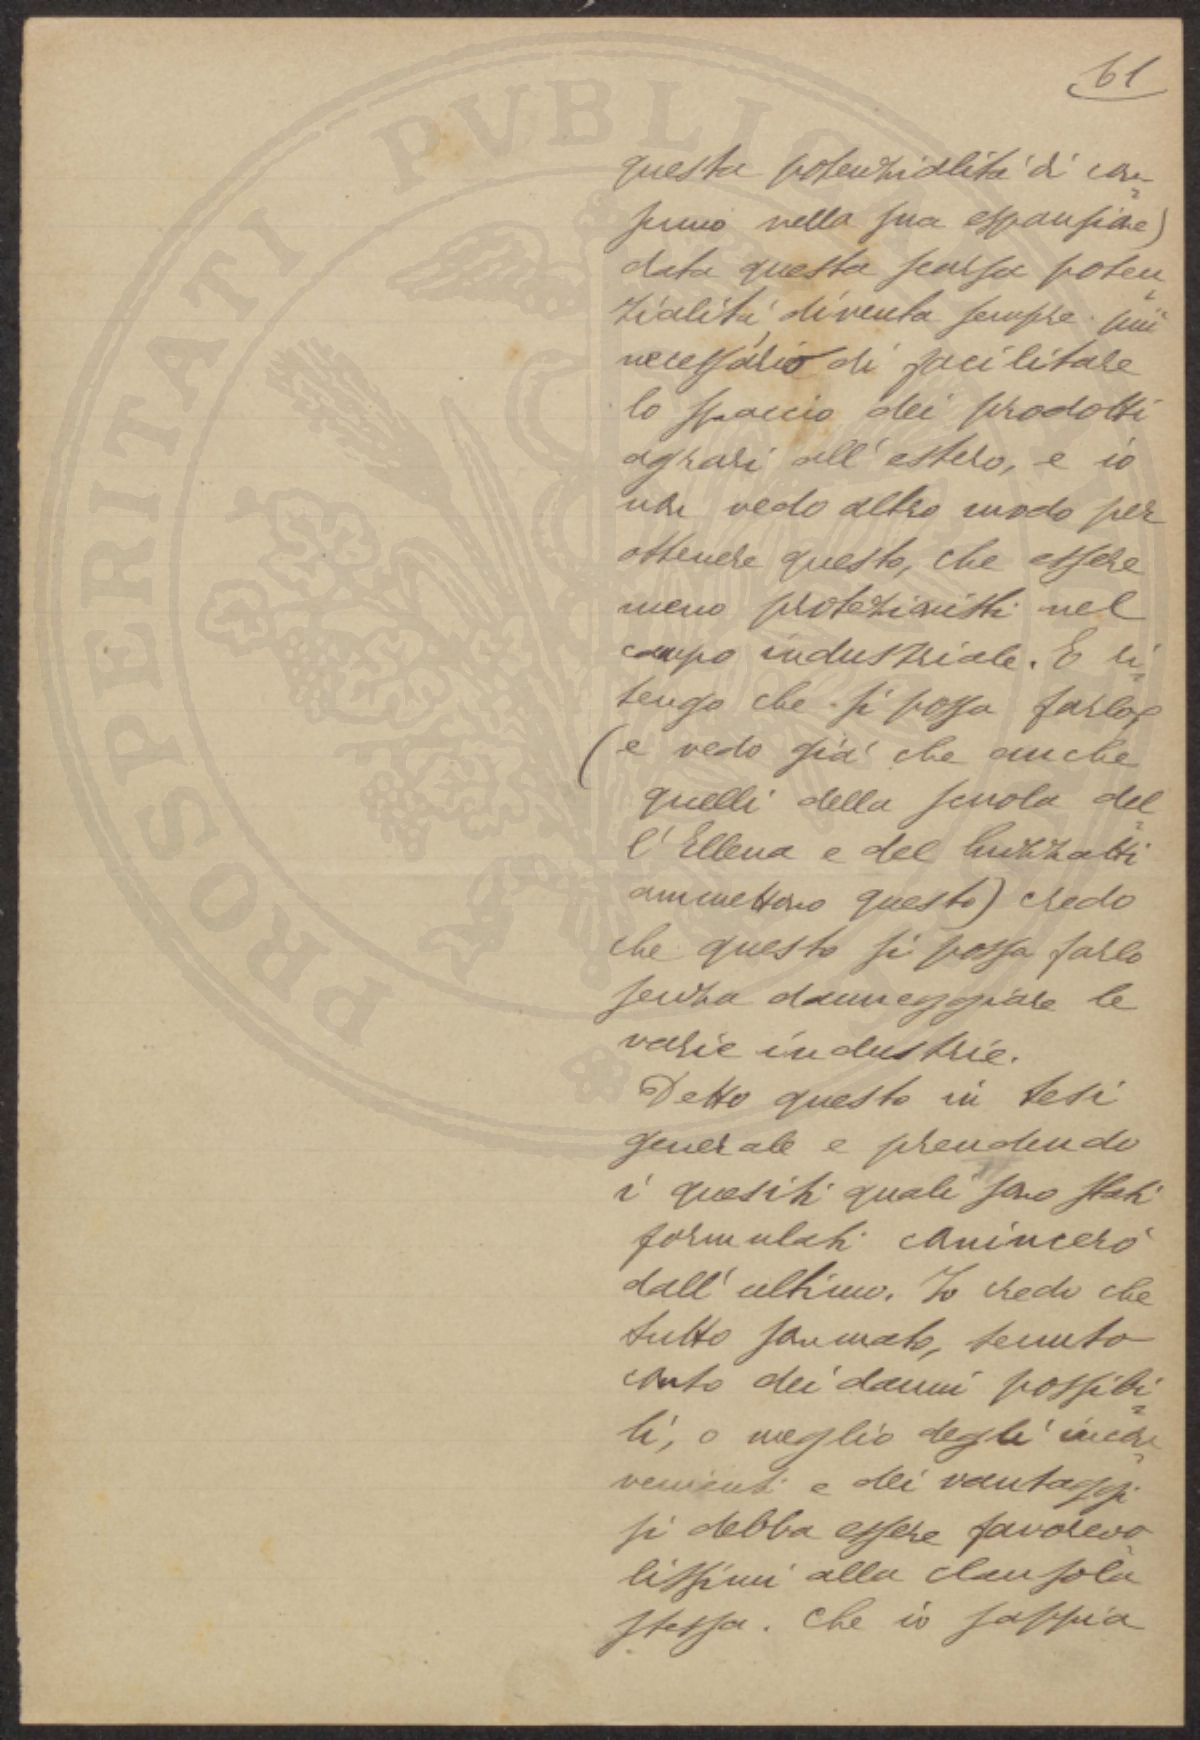 61
questa potenzialità di con=
sumo nella sua espansione)
data questa scarsa poten=
zialità, diventa sempre più
necessario di facilitare
lo spaccio dei prodotti
agrari all'estero, e io
non vedo altro modo per
ottenere questo, che essere
meno protezionisti nel
campo industriale. E ri=
tengo che si possa farlo
(e vedo già che anche
quelli della scuola del=
l'Ellena e del Luzzatti
ammettono questo) credo
che questo si possa farlo
senza danneggiare le
varie industrie.
Detto questo in tesi
generale e prendendo
i quesiti quali sono stati
formulati comincerò
dall'ultimo. Io credo che
tutto sommato, tenuto
conto dei danni possibi=
li, o meglio degli incon=
venienti e dei vantaggi
si debba essere favorevo=
lissimi alla clausola
stessa. Che io sappia
PROSPERITATI PVBLICAE